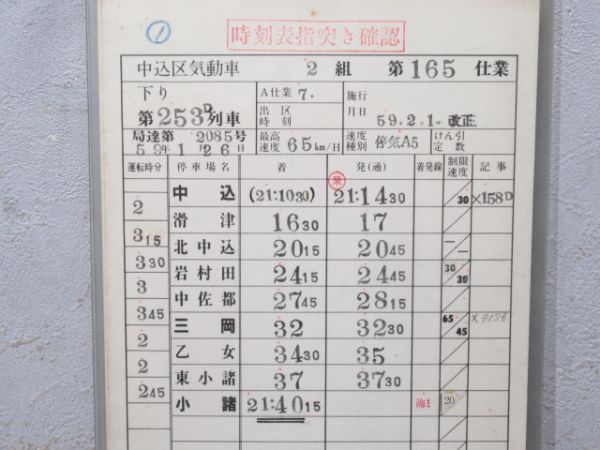 ① 時刻表指突き確認
中込区気動車 2組 第165仕業
下り A仕業 7. 施行
第253D列車 出区時刻 月日 59.2.1. 改正
局達第 2085号
59年1月26日 最高速度 65km/H 速度種別 停気A5 けん引定数
運転時分 停車場名 着 発(通) 着発線 制限速度 記事
中込 (21:1030) 乗 21:1430 30 ×158D
2
滑津 1630 17
315
北中込 2015 2045
330
岩村田 2415 2445 30 30
3
中佐都 2745 2815
345
三岡 32 3230 65 45
2
乙女 3430 35
2
東小諸 37 3730
245
小諸 21:4015 海1 20